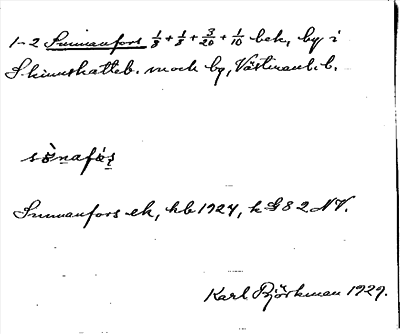 1-2 Sunnanfors 1/8 + 1/8 + 3/20 + 1/10 bek, by i
Skinnskatteb. sock by, Västmanl. b.
sònafǫs̩
Sunnanfors ek, kb 1924, k G 82 NV.
Karl Björkman 1929.